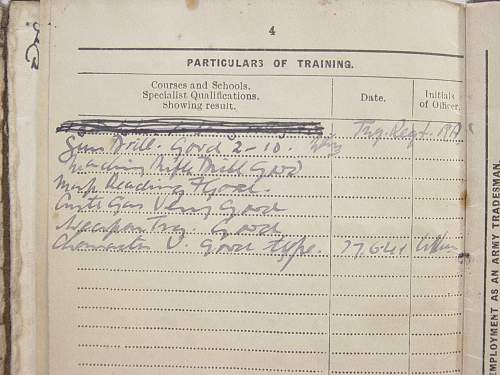 4
PARTICULARS OF TRAINING.
Courses and Schools.
Specialist Qualifications.
showing result.
Date.
Initials
of Officer.
Trg. Regt. RA
Gun Drill. Good 2-10.
Marching Rifle Drill Good
Map Reading Good.
Anti Gas Very Good
Weapon Trg. Good
Character V. Good type. 27.6.41
EMPLOYMENT AS AN ARMY TRADESMAN.